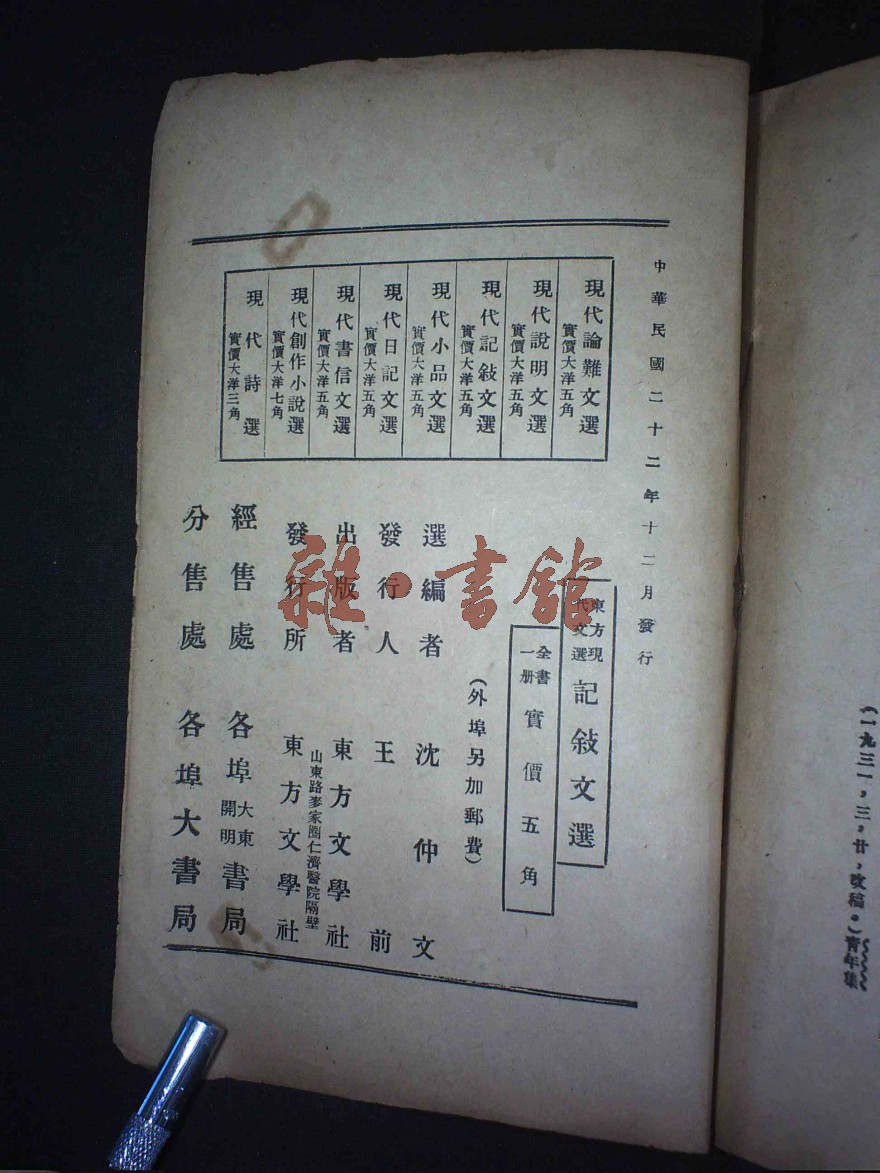 （一九三一，三，廿，改稿。）青年集
中華民國二十二年十二月發行
東方現代文選
記敍文選
全書一册
實價五角
（外埠另加郵費）
選編者 沈仲文
發行人 王前
出版者 東方文學社
山東路麥家圈仁濟醫院隔壁
發行所 東方文學社
經售處 各埠大東開明書局
分售處 各埠大書局
現代論難文選
實價大洋五角
現代說明文選
實價大洋五角
現代記敍文選
實價大洋五角
現代小品文選
實價大洋五角
現代日記文選
實價大洋五角
現代書信文選
實價大洋五角
現代創作小說選
實價大洋七角
現代詩選
實價大洋三角
雜·書館